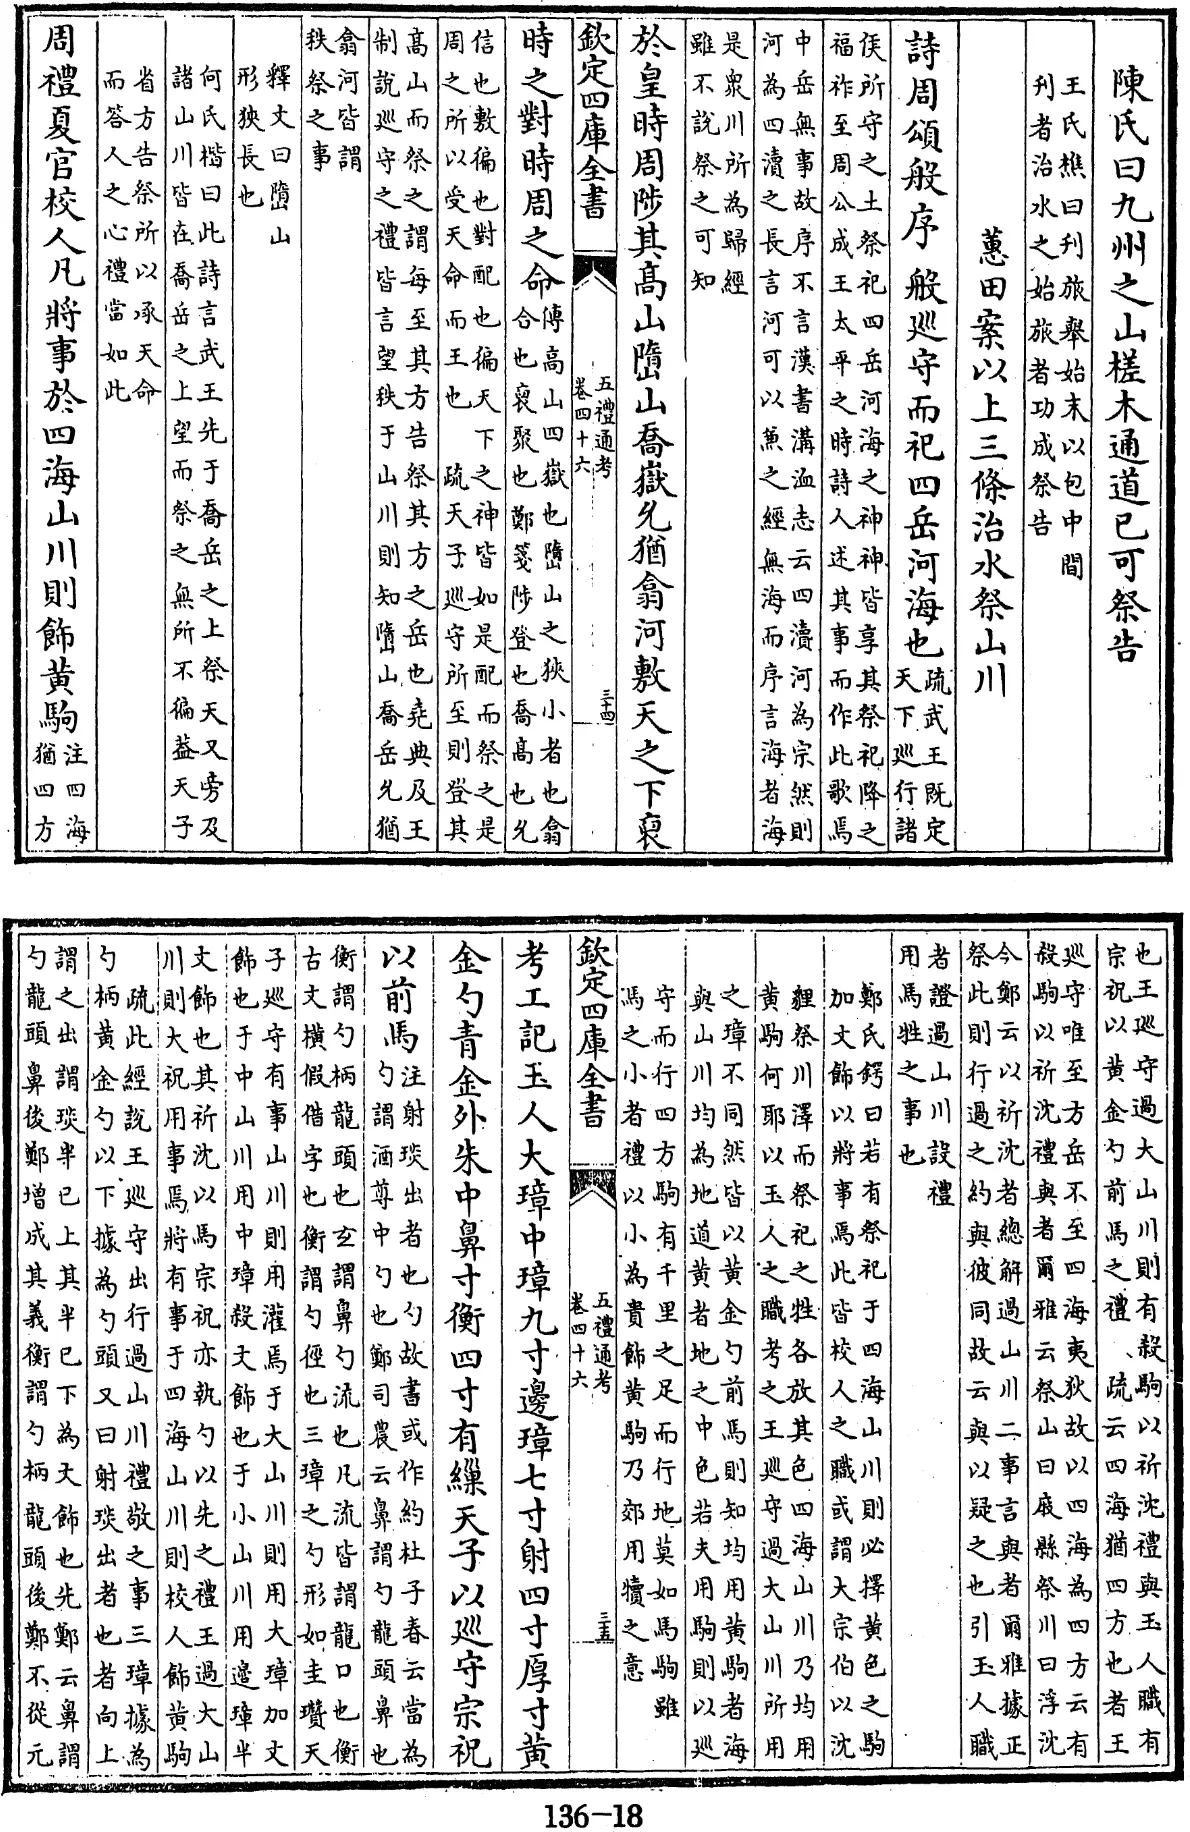 陳氏曰九州之山槎木通道已可祭告
王氏樵曰刋旅舉始末以包中間
刋者治水之始旅者功成祭告
蕙田案以上三條治水祭山川
詩周頌般序般廵守而祀四岳河海也
疏武王既定
天下廵行諸
侯所守之土祭祀四岳河海之神神皆享其祭祀降之
福祚至周公成王太平之時詩人述其事而作此歌焉
中岳無事故序不言漢書溝洫志云四瀆河為宗然則
河為四瀆之長言河可以兼之經無海而序言海者海
是衆川所為歸經
雖不說祭之可知
於皇時周陟其髙山嶞山喬嶽允猶翕河敷天之下裒
欽定四庫全書
五禮通考
卷四十六
三十四
時之對時周之命
傳高山四嶽也嶞山之狹小者也翕
合也裒聚也鄭箋陟登也喬高也允
信也敷徧也對配也徧天下之神皆如是配而祭之是
周之所以受天命而王也 疏天子廵守所至則登其
高山而祭之謂每至其方告祭其方之岳也堯典及王
制說廵守之禮皆言望秩于山川則知嶞山喬岳允猶
翕河皆謂
秩祭之事
釋文曰嶞山
形狹長也
何氏楷曰此詩言武王先于喬岳之上祭天又旁及
諸山川皆在喬岳之上望而祭之無所不徧葢天子
省方告祭所以承天命
而答人之心禮當如此
周禮夏官校人凡將事於四海山川則飾黄駒
注四海
猶四方
也王廵守過大山川則有殺駒以祈沈禮與玉人職有
宗祝以黄金勺前馬之禮 疏云四海猶四方也者王
廵守唯至方岳不至四海夷狄故以四海為四方云有
殺駒以祈沈禮與者爾雅云祭山曰庪縣祭川曰浮沈
今鄭云以祈沈者總解過山川二事言與者爾雅據正
祭此則行過之約與彼同故云與以疑之也引玉人職
者證過山川設禮
用馬牲之事也
鄭氏鍔曰若有祭祀于四海山川則必擇黄色之駒
加文飾以將事焉此皆校人之職或謂大宗伯以沈
貍祭川澤而祭祀之牲各放其色四海山川乃均用
黄駒何耶以玉人之職考之王廵守過大山川所用
之璋不同然皆以黄金勺前馬則知均用黄駒者海
與山川均為地道黄者地之中色若夫用駒則以廵
守而行四方駒有千里之足而行地莫如馬駒雖
馮之小者禮以小為貴飾黄駒乃郊用犢之意
欽定四庫全書
五禮通考
卷四十六
三十五
考工記玉人大璋中璋九寸邊璋七寸射四寸厚寸黄
金勺青金外朱中鼻寸衡四寸有繅天子以廵守宗祝
以前馬
注射琰出者也勺故書或作約杜子春云當為
勺謂酒尊中勺也鄭司農云鼻謂勺龍頭鼻也
衡謂勺柄龍頭也玄謂鼻勺流也凡流皆謂龍口也衡
古文橫假借字也衡謂勺徑也三璋之勺形如圭瓚天
子廵守有事山川則用灌焉于大山川則用大璋加文
飾也于中山川用中璋殺文飾也于小山川用邉璋半
文飾也其祈沈以馬宗祝亦執勺以先之禮王過大山
川則大祝用事焉將有事于四海山川則校人飾黄駒
疏此經說王廵守出行過山川禮敬之事三璋據為
勺柄黄金勺以下據為勺頭又曰射琰出者也者向上
謂之出謂琰半已上其半已下為文飾也先鄭云鼻謂
勺龍頭鼻後鄭增成其義衡謂勺柄龍頭後鄭不從元
136-18